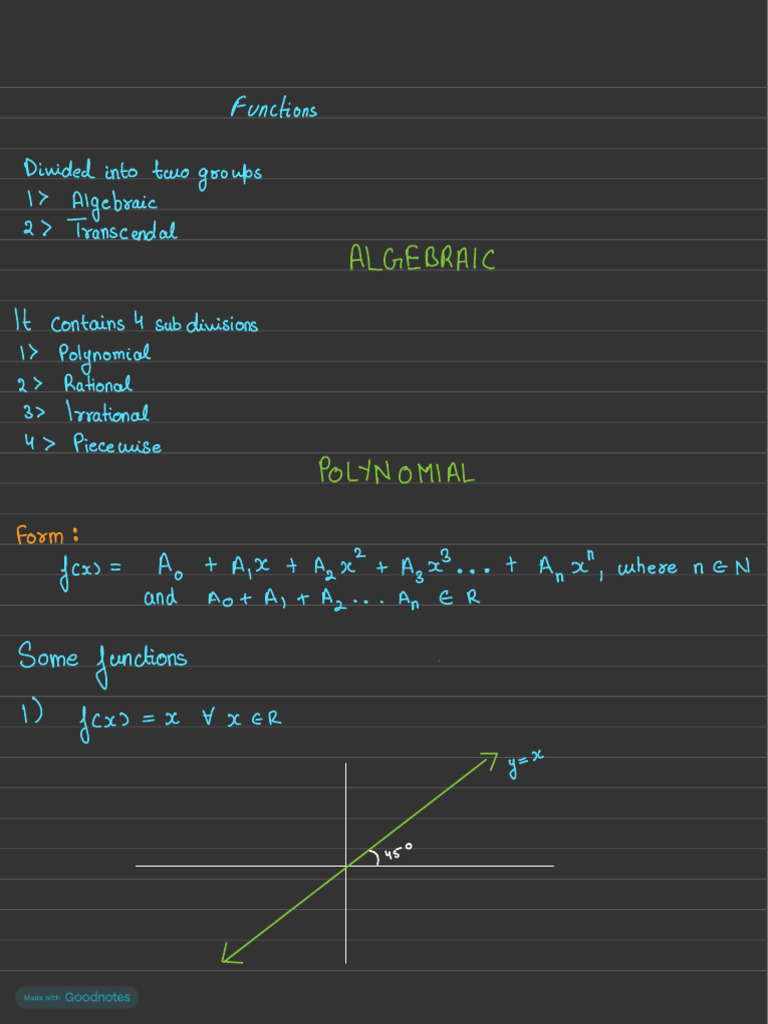 Functions
Divided into two groups
1> Algebraic
2> Transcendal
ALGEBRAIC
It contains 4 subdivisions
1> Polynomial
2> Rational
3> Irrational
4> Piecewise
POLYNOMIAL
Form :
f(x) = A₀ + A₁x + A₂x² + A₃x³... + Aₙxⁿ, where n ∈ N
and A₀ + A₁ + A₂... Aₙ ∈ R
Some functions
1) f(x) = x ∀ x ∈ R
y=x
45°
Made with Goodnotes